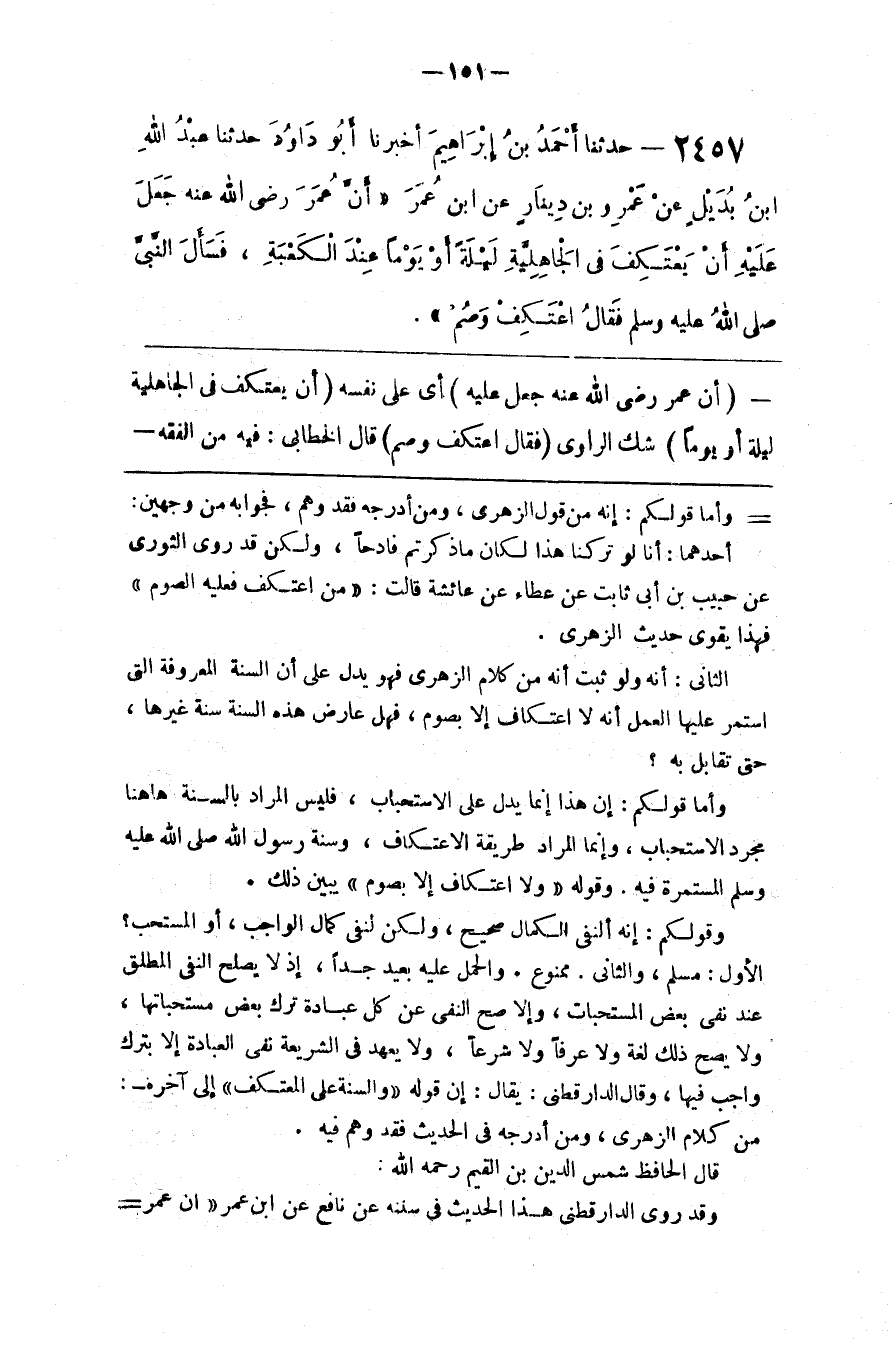 — ١٥١ —
٢٤٥٧ — حدثنا أَحْمَدُ بنُ إِبْرَاهِيمَ أخبرنا أَبُو دَاوُدَ حدثنا عبْدُ اللهِ
ابنُ بُدَيْلٍ عنْ عَمْرِو بن دِينَارٍ عن ابن عُمَرَ « أَنَّ عُمَرَ رضى الله عنه جَعَلَ
عَلَيْهِ أَنْ يَعْتَكِفَ فى الجَاهِلِيَّةِ لَيْلَةً أَوْ يَوْماً عِنْدَ الْكَعْبَةِ ، فَسَأَلَ النَّبىَّ
صلى اللهُ عليه وسلم فَقَالُ اعْتَكِفْ وَصُمْ » .
— ( أن عمر رضى الله عنه جعل عليه ) أى على نفسه ( أن يعتكف فى الجاهلية
ليلة أو يوماً ) شك الراوى (فقال اعتكف وصم) قال الخطابى : فيه من الفقه —
= وأما قولكم : إنه من قول الزهرى ، ومن أدرجه فقد وهم ، فجوابه من وجهين :
أحدهما : أنا لو تركنا هذا لكان ماذكرتم قادحاً ، ولكن قد روى الثورى
عن حبيب بن أبى ثابت عن عطاء عن عائشة قالت : « من اعتكف فعليه الصوم »
فهذا يقوى حديث الزهرى .
الثانى : أنه ولو ثبت أنه من كلام الزهرى فهو يدل على أن السنة المعروفة التى
استمر عليها العمل أنه لا اعتكاف إلا بصوم ، فهل عارض هذه السنة سنة غيرها ،
حتى تقابل به ؟
وأما قولكم : إن هذا إنما يدل على الاستحباب ، فليس المراد بالسنة هاهنا
مجرد الاستحباب ، وإنما المراد طريقة الاعتكاف ، وسنة رسول الله صلى الله عليه
وسلم المستمرة فيه . وقوله « ولا اعتكاف إلا بصوم » يبين ذلك .
وقولكم : إنه ألنفى الكمال صحيح ، ولكن لنفى كمال الواجب ، أو المستحب؟
الأول : مسلم ، والثانى . ممنوع . والحمل عليه بعيد جداً ، إذ لا يصلح النفى المطلق
عند نفى بعض المستحبات ، وإلا صح النفى عن كل عبادة ترك بعض مستحباتها ،
ولا يصح ذلك لغة ولا عرفاً ولا شرعاً ، ولا يعهد فى الشريعة نفى العبادة إلا بترك
واجب فيها ، وقال الدارقطنى : يقال : إن قوله «والسنة على المعتكف» إلى آخره :
من كلام الزهرى ، ومن أدرجه فى الحديث فقد وهم فيه .
قال الحافظ شمس الدين بن القيم رحمه الله :
وقد روى الدارقطنى هذا الحديث فى سننه عن نافع عن ابن عمر « ان عمر =